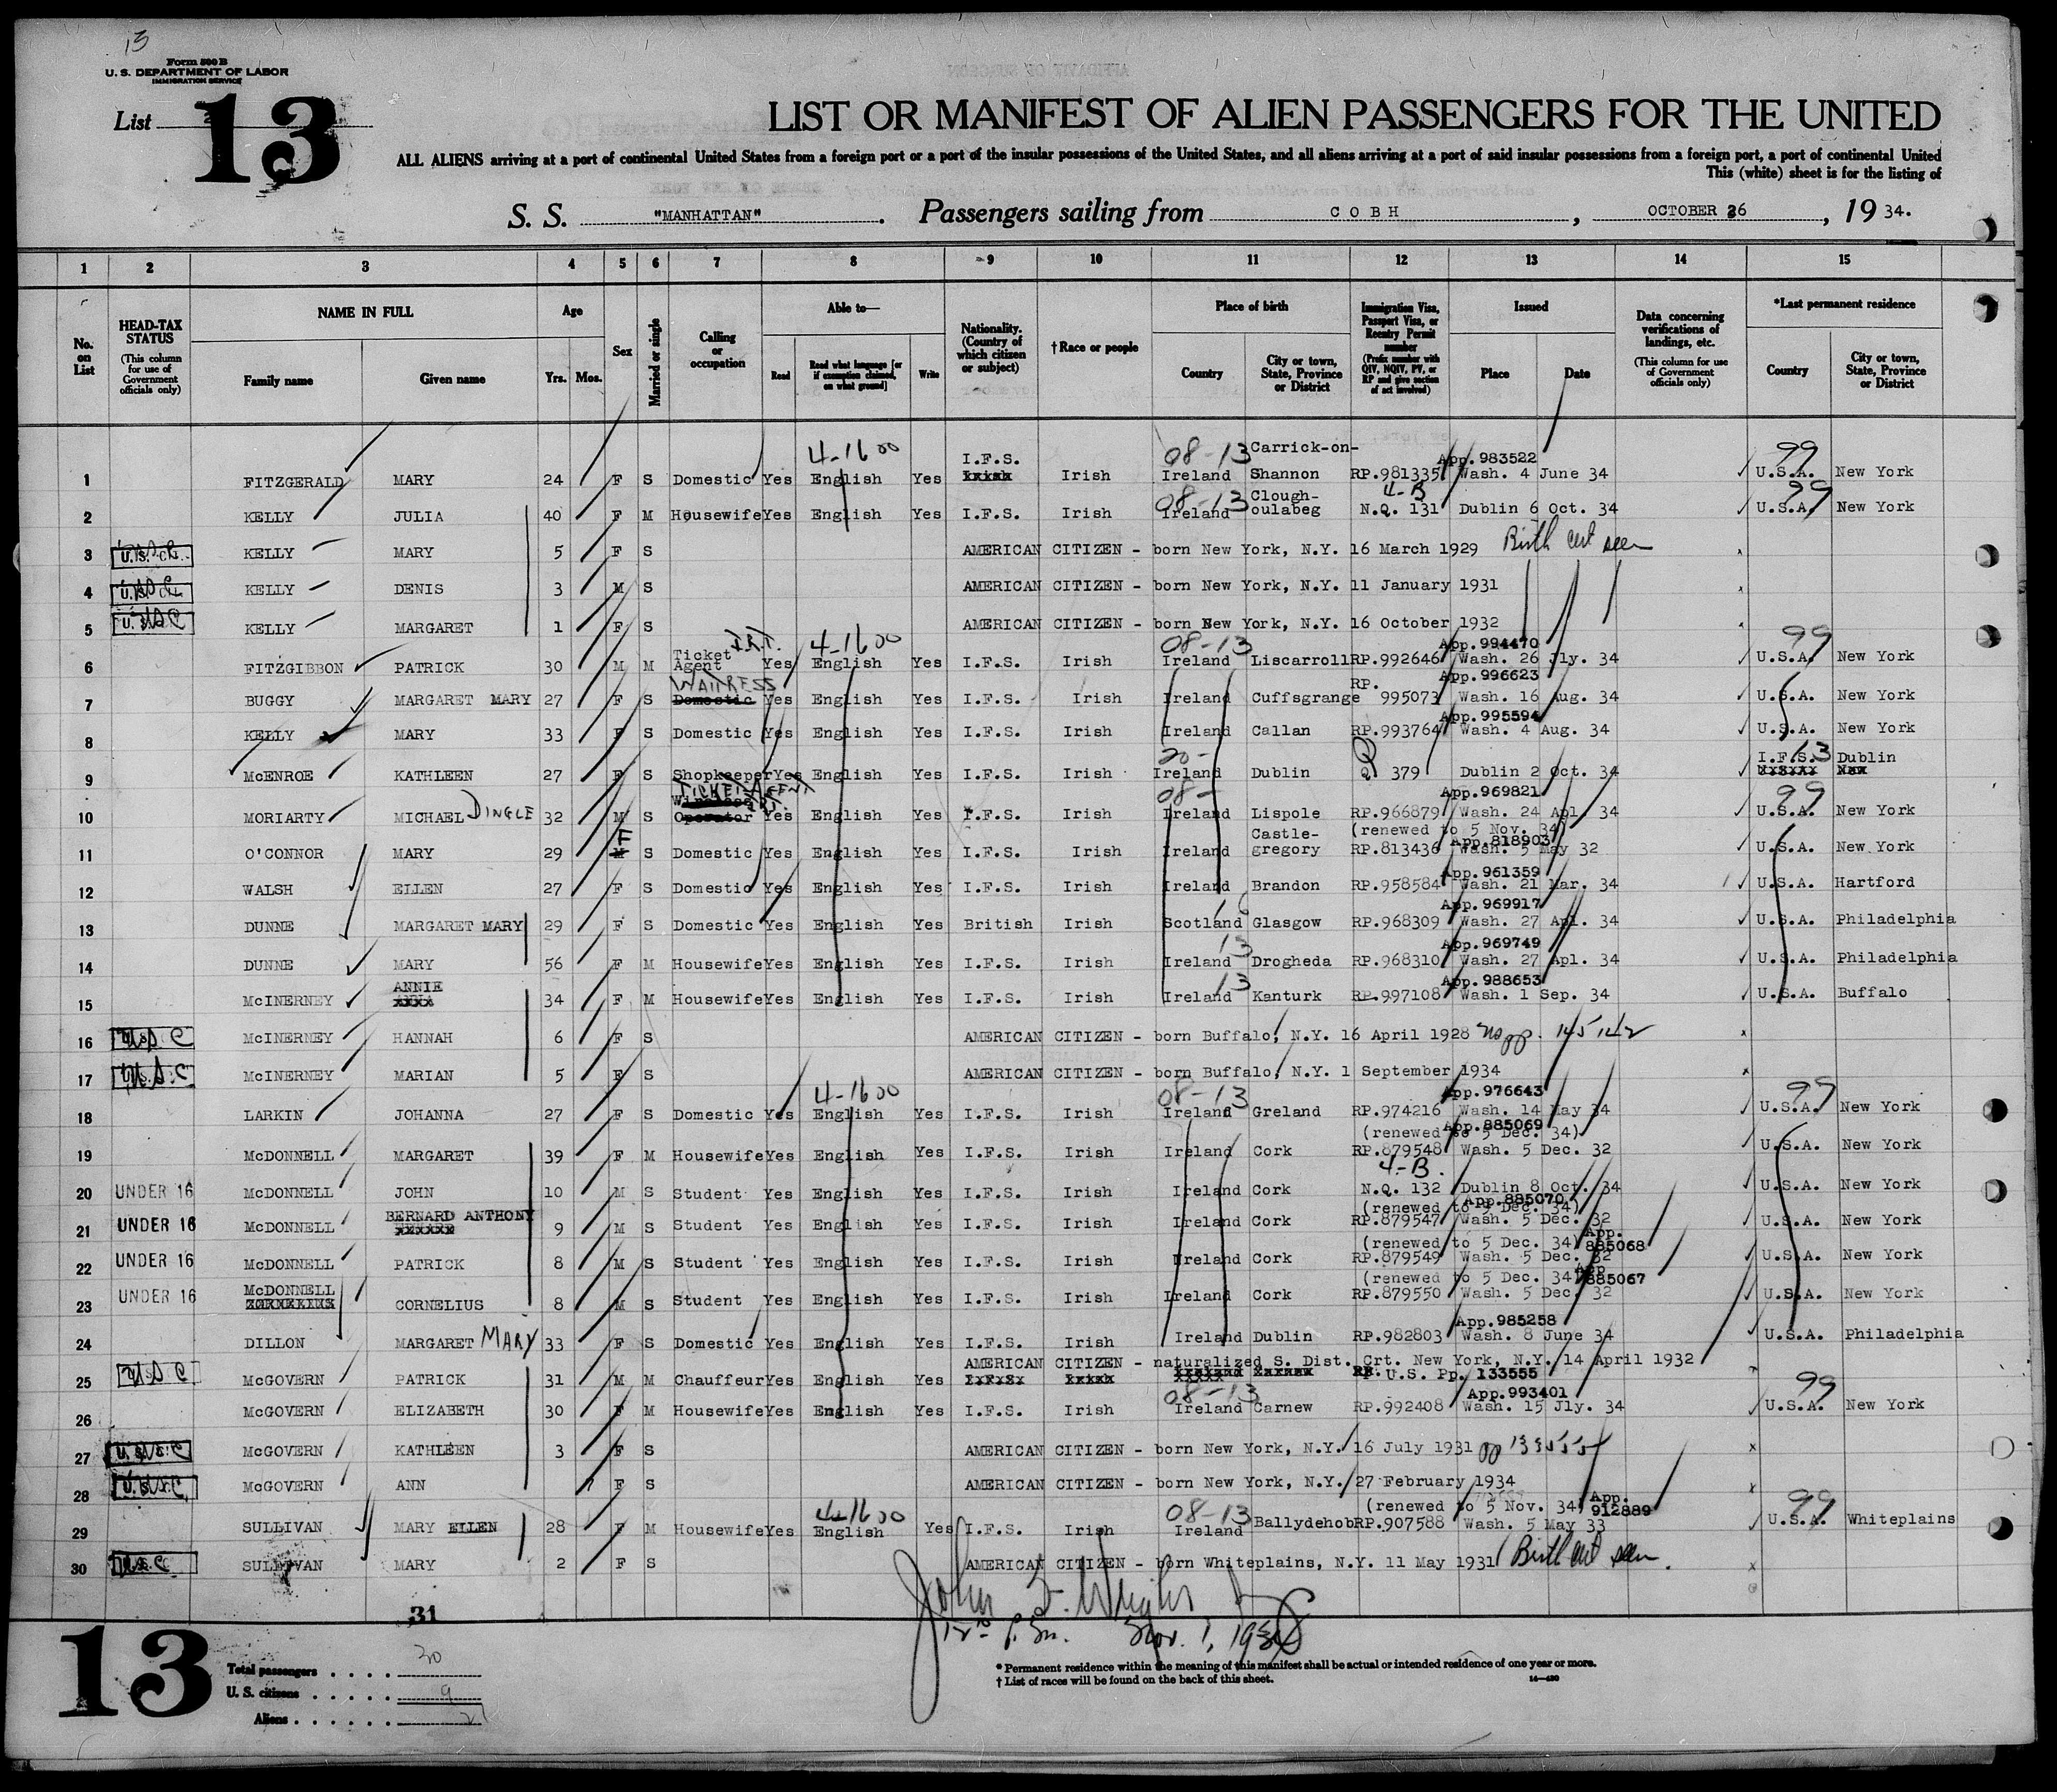 13
Form 500 B
U. S. DEPARTMENT OF LABOR
IMMIGRATION SERVICE
List 13
LIST OR MANIFEST OF ALIEN PASSENGERS FOR THE UNITED
ALL ALIENS arriving at a port of continental United States from a foreign port or a port of the insular possessions of the United States, and all aliens arriving at a port of said insular possessions from a foreign port, a port of continental United
This (white) sheet is for the listing of
S. S. "MANHATTAN". Passengers sailing from COBH, OCTOBER 26, 19 34.
1 2 3 4 5 6 7 8 9 10 11 12 13 14 15
No. on List
HEAD-TAX STATUS (This column for use of Government officials only)
NAME IN FULL
Family name Given name
Age Yrs. Mos.
Sex
Married or single
Calling or occupation
Able to—
Read Read what language [or if exemption claimed, on what ground] Write
Nationality. (Country of which citizen or subject)
†Race or people
Place of birth
Country City or town, State, Province or District
Immigration Visa, Passport Visa, or Reentry Permit number (Prefix number with QIV, NQIV, PV, or RP and give section of act involved)
Issued
Place Date
Data concerning verifications of landings, etc. (This column for use of Government officials only)
*Last permanent residence
Country City or town, State, Province or District
4-1600 I.F.S. 08-13 Carrick-on- App.983522 99
1 FITZGERALD MARY 24 F S Domestic Yes English Yes Irish Ireland Shannon RP.981335 Wash. 4 June 34 U.S.A. New York
08-13 Clough- 4-B 99
2 KELLY JULIA 40 F M Housewife Yes English Yes I.F.S. Irish Ireland oulabeg N.Q. 131 Dublin 6 Oct. 34 U.S.A. New York
3 U.S.C. KELLY MARY 5 F S AMERICAN CITIZEN - born New York, N.Y. 16 March 1929 Birth cert seen
4 U.S.C. KELLY DENIS 3 M S AMERICAN CITIZEN - born New York, N.Y. 11 January 1931
5 U.S.C. KELLY MARGARET 1 F S AMERICAN CITIZEN - born New York, N.Y. 16 October 1932
Ticket I.R.T. 4-1600 08-13 App.994470 99
6 FITZGIBBON PATRICK 30 M M Agent Yes English Yes I.F.S. Irish Ireland Liscarroll RP.992646 Wash. 26 Jly. 34 U.S.A. New York
WAITRESS RP. App.996623
7 BUGGY MARGARET MARY 27 F S Domestic Yes English Yes I.F.S. Irish Ireland Cuffsgrange 995073 Wash. 16 Aug. 34 U.S.A. New York
App.995594
8 KELLY MARY 33 F S Domestic Yes English Yes I.F.S. Irish Ireland Callan RP.993764 Wash. 4 Aug. 34 U.S.A. New York
20- I.F.S. 13 Dublin
9 McENROE KATHLEEN 27 F S Shopkeeper Yes English Yes I.F.S. Irish Ireland Dublin 379 Dublin 2 Oct. 34
TICKET AGENT I.R.T. 08- App.969821 99
10 MORIARTY MICHAEL DINGLE 32 M S Operator Yes English Yes I.F.S. Irish Ireland Lispole RP.966879 Wash. 24 Apl. 34 U.S.A. New York
F Castle- (renewed to 5 Nov. 34) App.818903
11 O'CONNOR MARY 29 M S Domestic Yes English Yes I.F.S. Irish Ireland gregory RP.813436 Wash. 5 May 32 U.S.A. New York
App.961359
12 WALSH ELLEN 27 F S Domestic Yes English Yes I.F.S. Irish Ireland Brandon RP.958584 Wash. 21 Mar. 34 U.S.A. Hartford
App.969917
13 DUNNE MARGARET MARY 29 F S Domestic Yes English Yes British Irish Scotland Glasgow RP.968309 Wash. 27 Apl. 34 U.S.A. Philadelphia
13 App.969749
14 DUNNE MARY 56 F M Housewife Yes English Yes I.F.S. Irish Ireland Drogheda RP.968310 Wash. 27 Apl. 34 U.S.A. Philadelphia
ANNIE 13 App.988653
15 McINERNEY 34 F M Housewife Yes English Yes I.F.S. Irish Ireland Kanturk RP.997108 Wash. 1 Sep. 34 U.S.A. Buffalo
16 U.S.C. McINERNEY HANNAH 6 F S AMERICAN CITIZEN - born Buffalo, N.Y. 16 April 1928
17 U.S.C. McINERNEY MARIAN 5 F S AMERICAN CITIZEN - born Buffalo, N.Y. 1 September 1934
4-1600 08-13 App.976643 99
18 LARKIN JOHANNA 27 F S Domestic Yes English Yes I.F.S. Irish Ireland Greland RP.974216 Wash. 14 May 34 U.S.A. New York
(renewed to 5 Dec. 34) App.885069
19 McDONNELL MARGARET 39 F M Housewife Yes English Yes I.F.S. Irish Ireland Cork RP.879548 Wash. 5 Dec. 32 U.S.A. New York
4-B.
20 UNDER 16 McDONNELL JOHN 10 M S Student Yes English Yes I.F.S. Irish Ireland Cork N.Q. 132 Dublin 8 Oct. 34 U.S.A. New York
BERNARD ANTHONY (renewed to 5 Dec. 34) App.885070
21 UNDER 16 McDONNELL 9 M S Student Yes English Yes I.F.S. Irish Ireland Cork RP.879547 Wash. 5 Dec. 32 U.S.A. New York
(renewed to 5 Dec. 34) App. 885068
22 UNDER 16 McDONNELL PATRICK 8 M S Student Yes English Yes I.F.S. Irish Ireland Cork RP.879549 Wash. 5 Dec. 32 U.S.A. New York
McDONNELL (renewed to 5 Dec. 34) App. 885067
23 UNDER 16 CORNELIUS 8 M S Student Yes English Yes I.F.S. Irish Ireland Cork RP.879550 Wash. 5 Dec. 32 U.S.A. New York
App.985258
24 DILLON MARGARET MARY 33 F S Domestic Yes English Yes I.F.S. Irish Ireland Dublin RP.982803 Wash. 8 June 34 U.S.A. Philadelphia
AMERICAN CITIZEN - naturalized S. Dist. Crt. New York, N.Y. 14 April 1932
25 U.S.C. McGOVERN PATRICK 31 M M Chauffeur Yes English Yes U.S. Pp. 133555
08-13 App.993401 99
26 McGOVERN ELIZABETH 30 F M Housewife Yes English Yes I.F.S. Irish Ireland Carnew RP.992408 Wash. 15 Jly. 34 U.S.A. New York
27 U.S.C. McGOVERN KATHLEEN 3 F S AMERICAN CITIZEN - born New York, N.Y. 16 July 1931 pp 133555
28 U.S.C. McGOVERN ANN F S AMERICAN CITIZEN - born New York, N.Y. 27 February 1934
4-1600 08-13 (renewed to 5 Nov. 34) App. 912889 99
29 SULLIVAN MARY ELLEN 28 F M Housewife Yes English Yes I.F.S. Irish Ireland Ballydehob RP.907588 Wash. 5 May 33 U.S.A. Whiteplains
30 U.S.C. SULLIVAN MARY 2 F S AMERICAN CITIZEN - born Whiteplains, N.Y. 11 May 1931 Birth cert seen
31
Nov. 1, 1934
13
Total passengers . . . . 30
U. S. citizens . . . . . 9
Aliens . . . . . . 21
* Permanent residence within the meaning of this manifest shall be actual or intended residence of one year or more.
† List of races will be found on the back of this sheet.
14—430